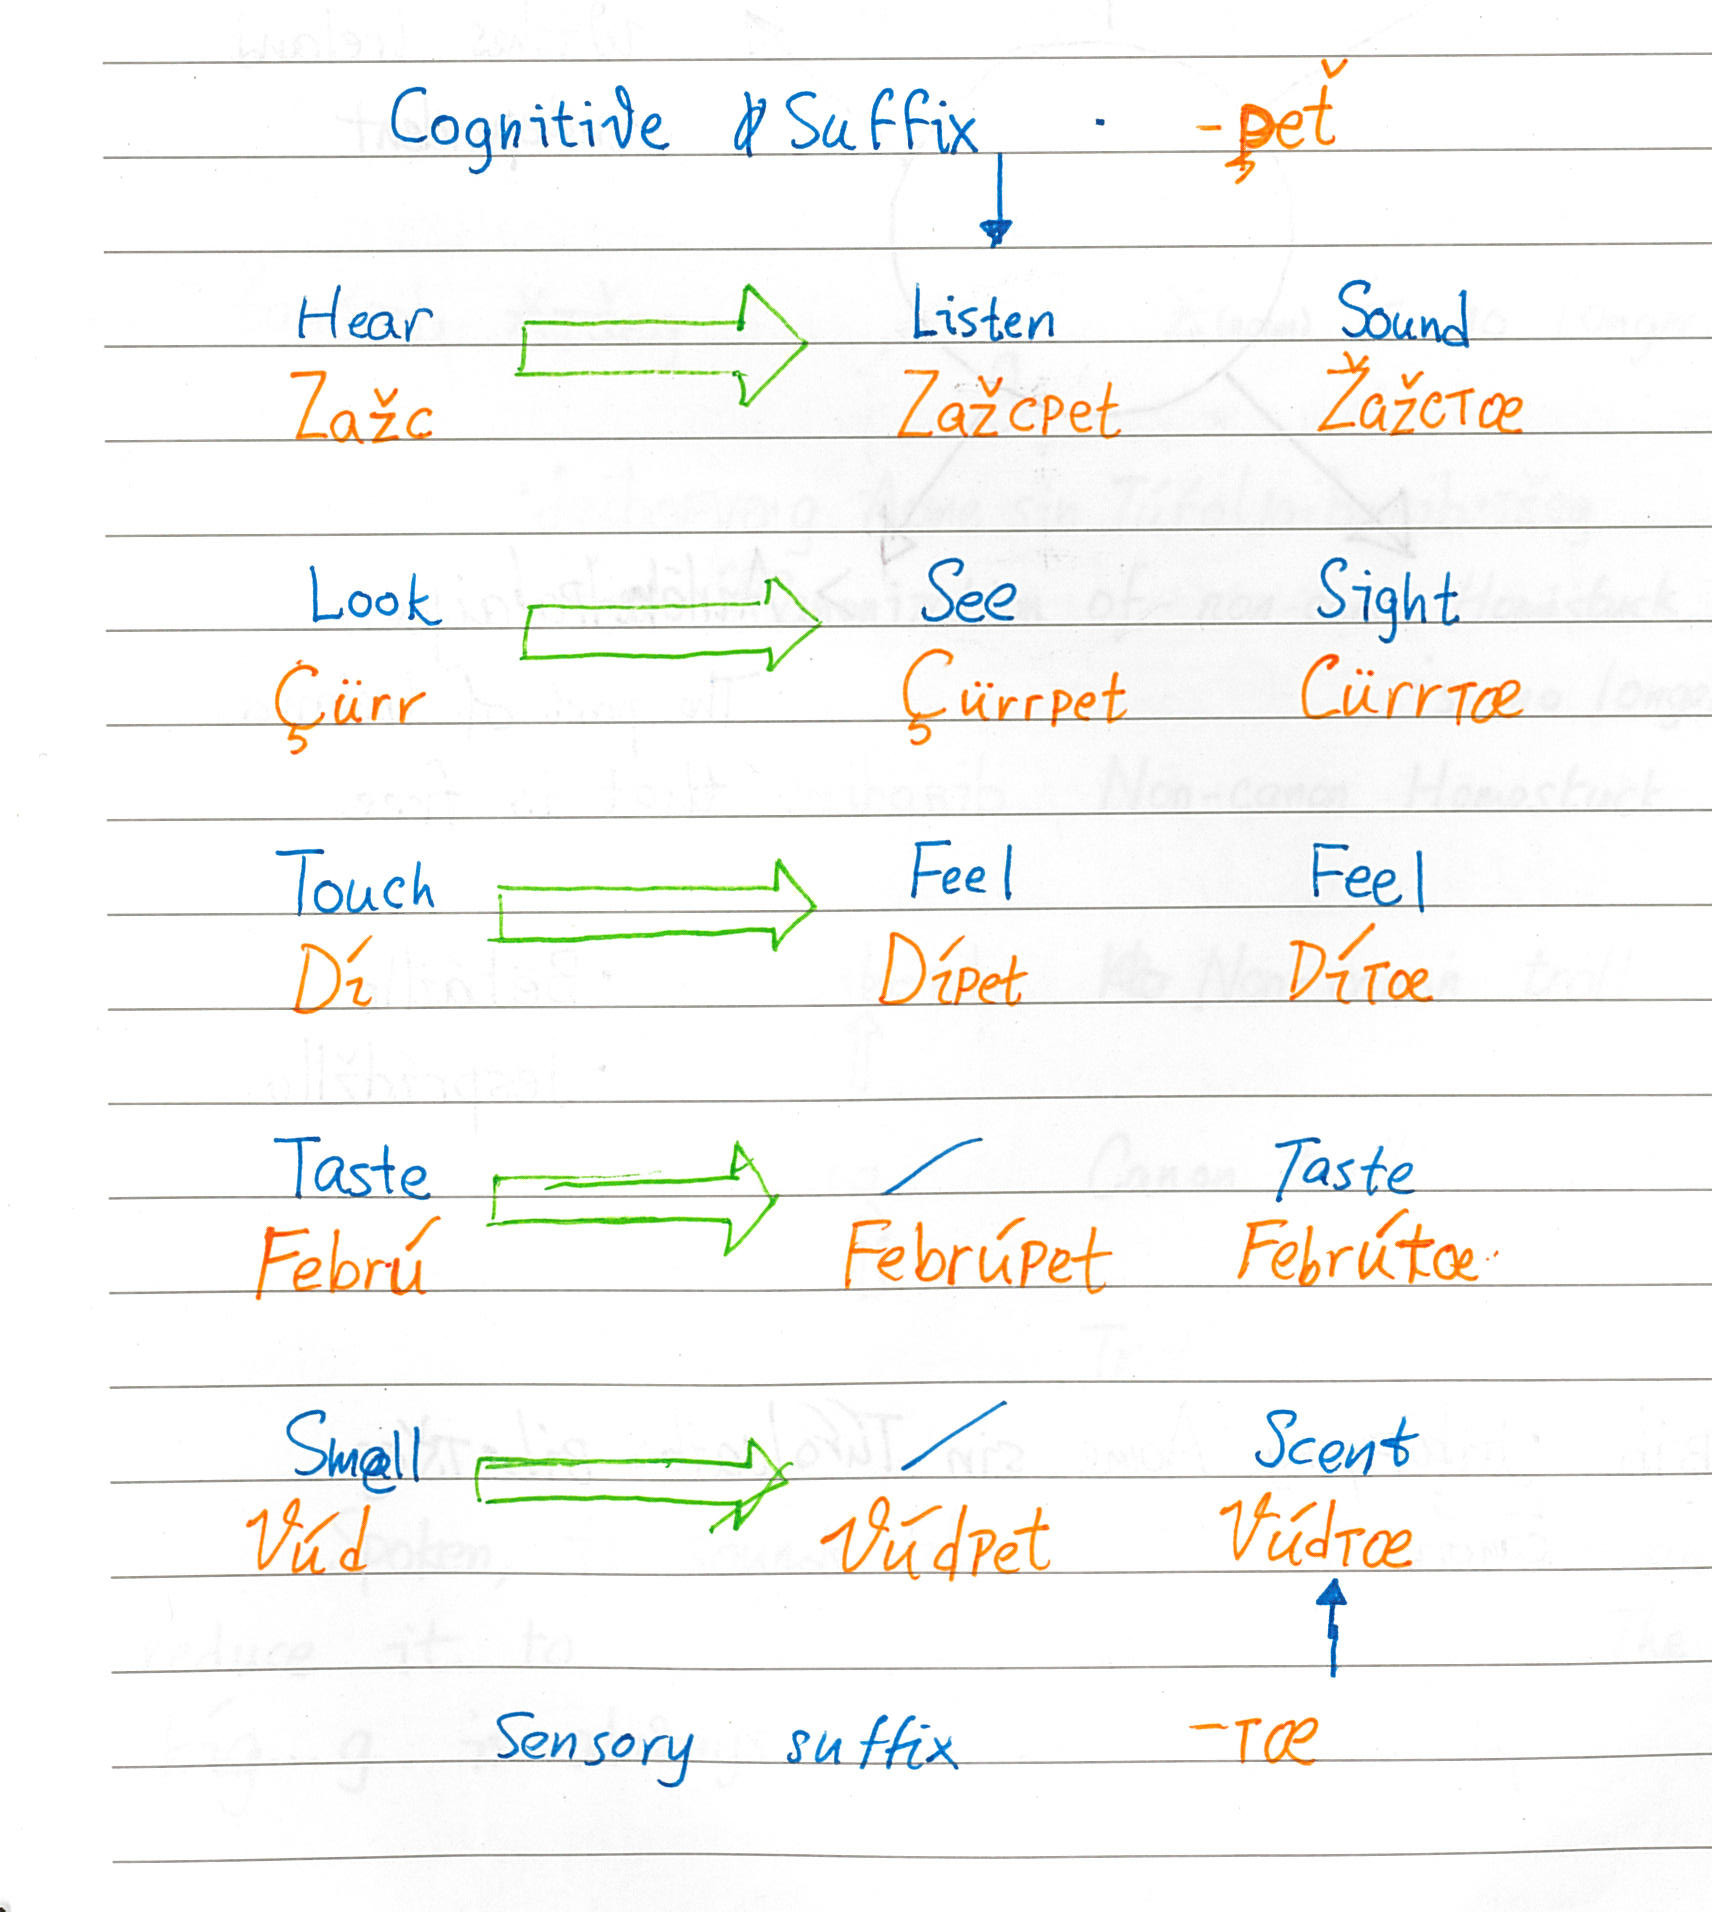 Cognitive Suffix · -p̧eť
Hear Listen Sound
Zažc Zažcpet Žažcтœ
Look See Sight
Çürr Çürrpet Cürrтœ
Touch Feel Feel
Dí Dípet Díтœ
Taste / Taste
Febrú Febrúpet Febrútœ
Smell / Scent
Vúd Vúdpet Vúdтœ
Sensory suffix -тœ